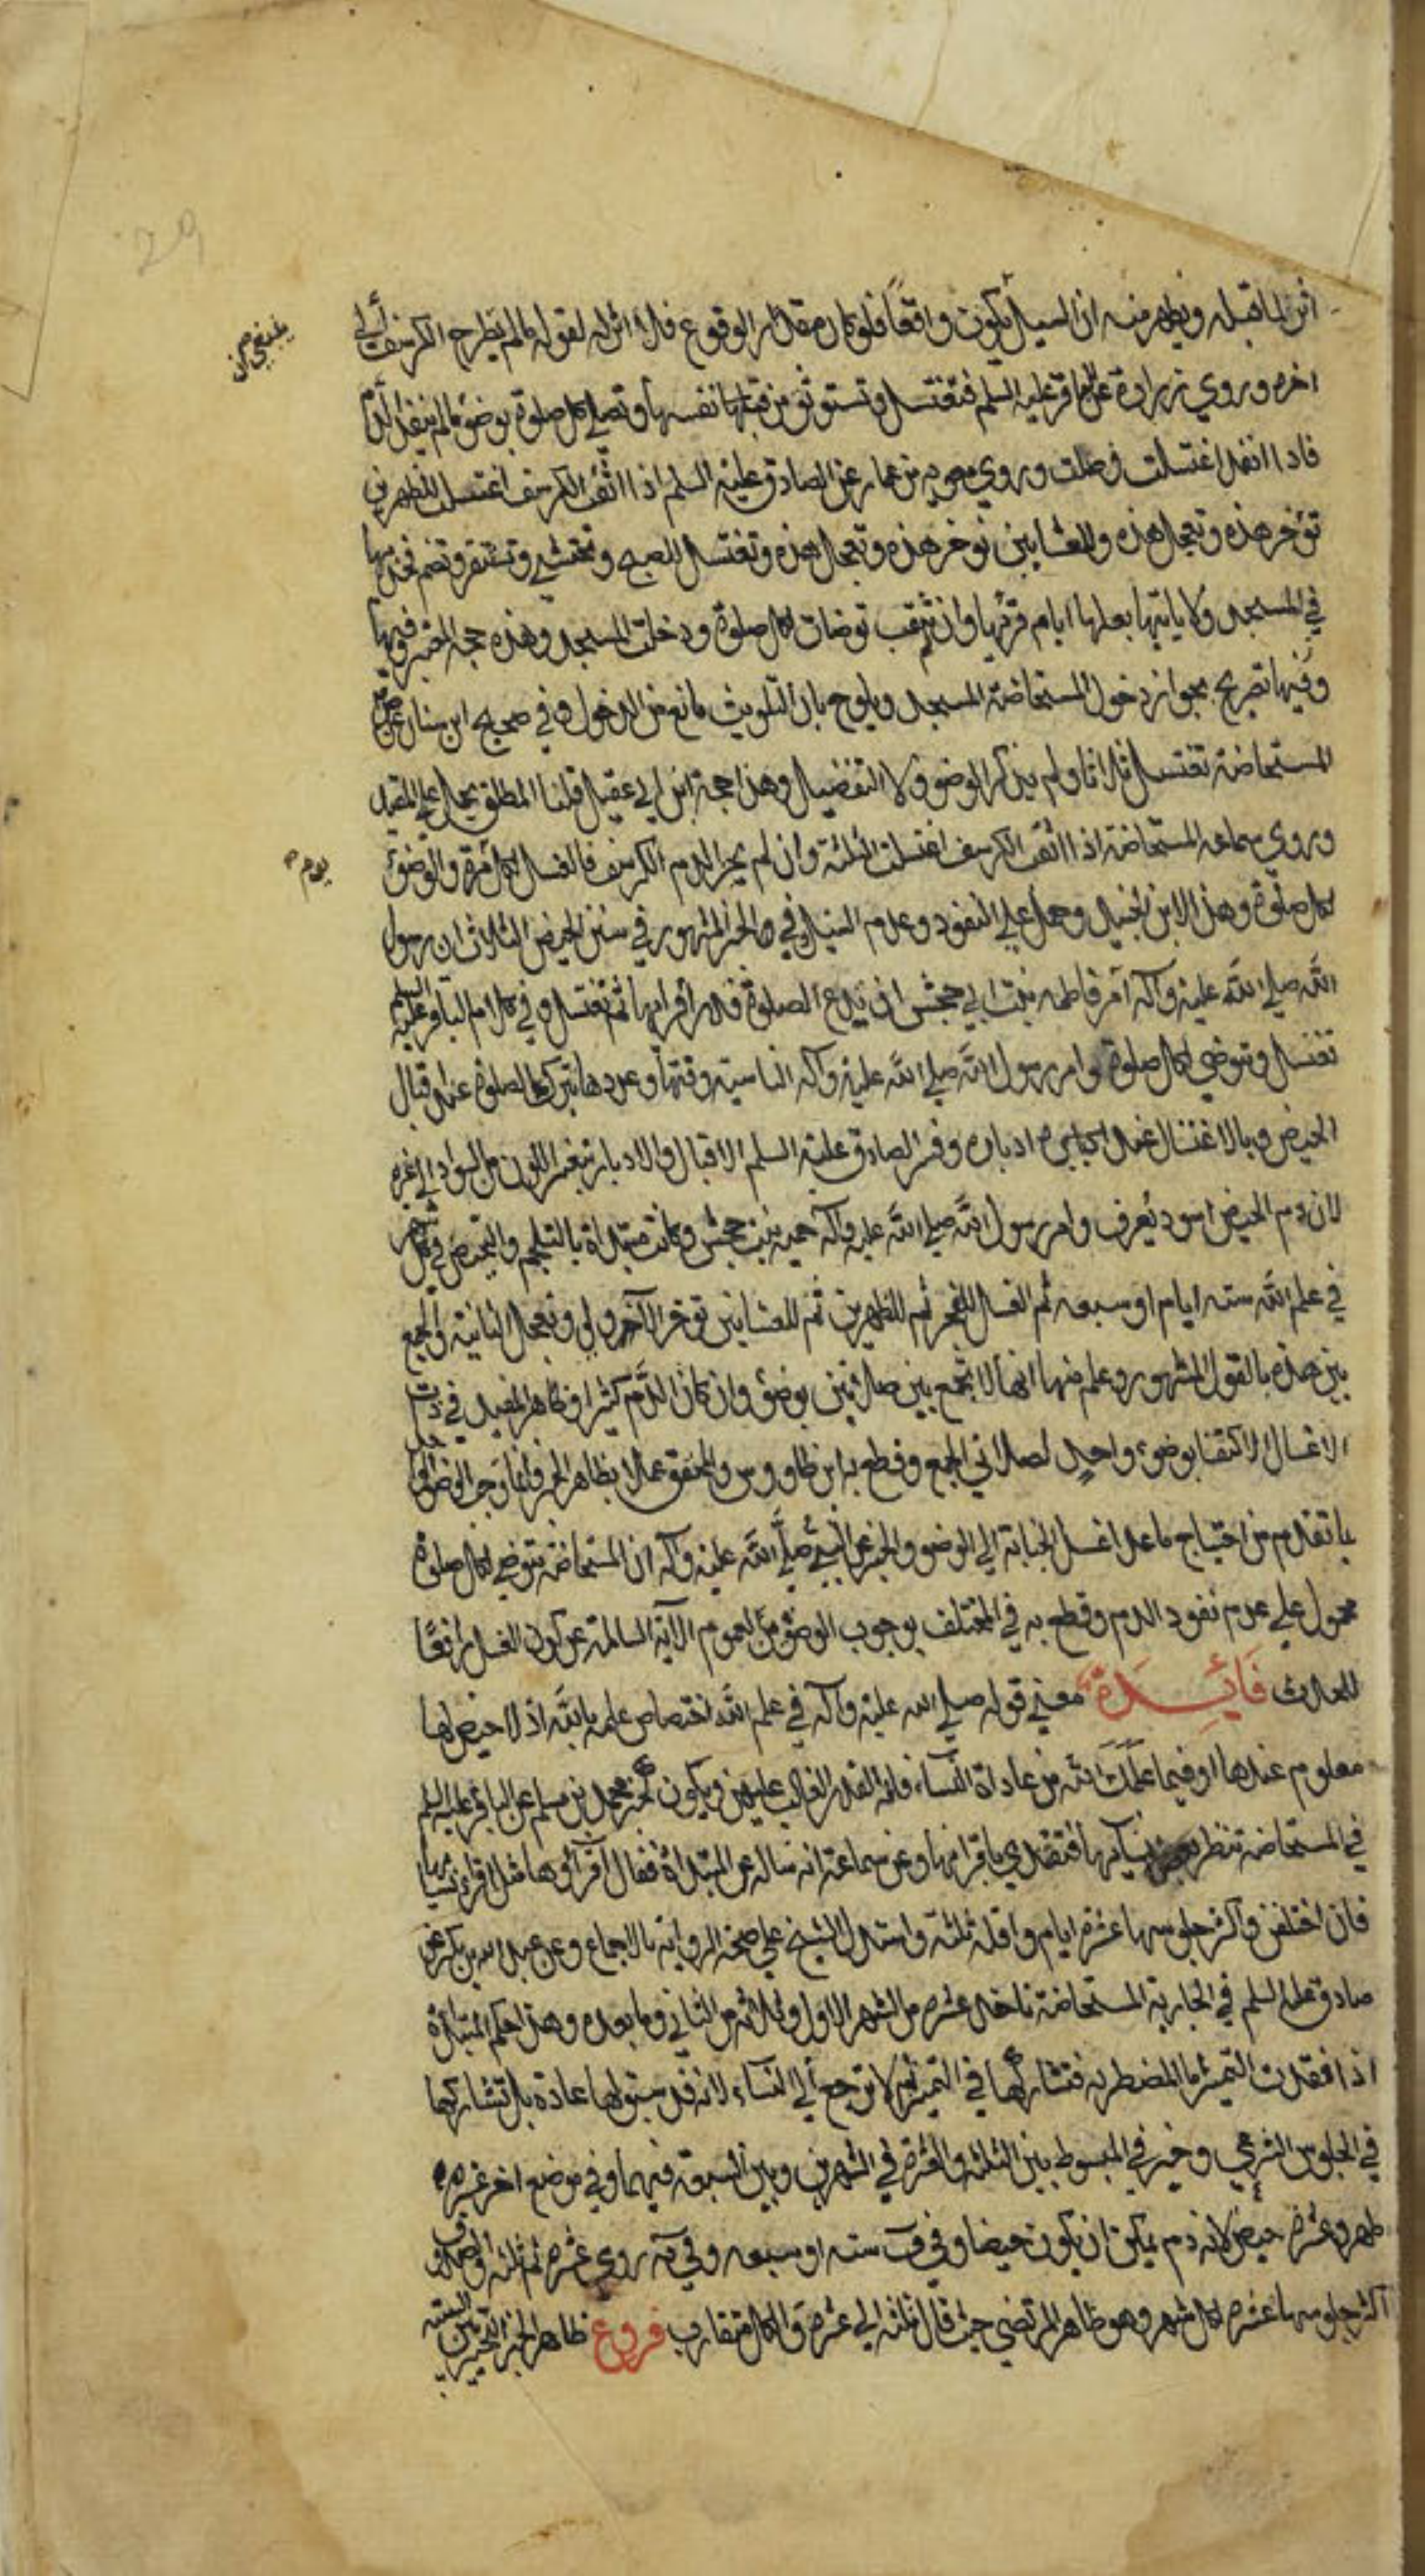 أثر لما قبله ويظهر منه ان السيل يكون واقعاً فلو كان مقدار الوقوع فلا اثر له لقوله ما لم يطرح الكرسف الى
اخره وروى زرارة عن الباقر عليه السلم فتغتسل وتستوثق من نفسها وتصلي كل صلوة بوضوء ما لم ينفذ الدم
فاذا انفذ اغتسلت وصلت وروي معويه بن عمار عن الصادق عليه السلم اذا اثقب الكرسف اغتسلت للظهرين
تؤخر هذه وتعجل هذه وللعشايين تؤخر هذه وتعجل هذه وتغتسل للصبح وتحتشي وتستثفر وتضم فخذيها
في المسجد ولا ياتيها بعلها ايام قرئها وان لم يثقب توضات لكل صلوة ودخلت المسجد وهذه حجة
وفيها تصريح بجواز دخول المستحاضة المسجد ويلوح بان التلويث مانع من الدخول وفي صحيح ابن سنان عن ص
المستحاضة تغتسل ثلاثا ولم يذكر الوضوء ولا التفضيل وهذا حجة ابن ابي عقيل قلنا المطلق يحمل على المقيد
وروي سماعه المستحاضة اذا اثقب الكرسف اغتسلت الثلثة وان لم يجز الدم الكرسف فالغسل لكل مرة والوضوء
لكل صلوة وهذا لابن الجنيد وحمل على النفوذ وعدم السيل وفي الخبر المشهور في سنن الحيض الثلاث ان رسول
الله صلى الله عليه وآله امر فاطمه بنت ابي حبيش ان تدع الصلوة قدر اقرايها ثم تغتسل وفي كلام الباقر عليه السلم
تغتسل وتتوضي لكل صلوة وامر رسول الله صلى الله عليه وآله الناسية وقتها وعددها بترك الصلوة عند اقبال
الحيض وبالاغتسال عند ادباره وفسر الصادق عليه السلم الاقبال والادبار بتغير اللون من السواد الى غيره
لان دم الحيض اسود يعرف وامر رسول الله صلى الله عليه وآله حمنه بنت جحش وكانت مبتداة بالتلجم والتحيض في كل شهر
في علم الله سته ايام او سبعه ثم الغسل للفجر ثم للظهرين ثم للعشايين تؤخر الاولي وتعجل الثانية والجمع
بين هذه بالقول المشهور وعلم منها انها لا تجمع بين صلاتين بوضوء وان كان الدم كثيرا وظاهر المفيد في ذات
الاغسال الاكتفا بوضوء واحد لصلاتي الجمع وقطع به ابن طاووس والمحقق عملا بظاهر الخبر وانما
بما تقدم من احتياج ما عدا غسل الجنابة الى الوضوء والخبر عن النبي صلى الله عليه وآله ان المستحاضة تتوضي لكل صلوة
محمول على عدم نفوذ الدم وقطع به في المختلف بوجوب الوضوء من لعموم الآية السالمة عن كون الغسل رافعًا
للحدث فَائِدَة معنى قوله صلى الله عليه وآله في علم الله اختصاص علمه بالله اذ لا حيض لها
معلوم عندها او فيما علمك الله من عادة النساء فانه القدر الغالب عليهن ويكون كخبر محمد بن مسلم عن الباقر عليه السلم
في المستحاضة تنظر بعض نسآئها فتقتدي باقرائها وعن سماعة انه ساله عن المبتداة فقال اقرآؤها مثل اقراء نسائها
فان اختلفن فاكثر جلوسها عشرة ايام واقله ثلثة واستدل الشيخ على صحة الرواية بالاجماع وعن عبد الله بن بكير عن
صادق عليه السلم في الجارية المستحاضة تاخذ عشرة من الشهر الاول وثلاثه من الثاني وما بعده وهذا حكم المبتداة
اذا فقدت التميز اما المضطربه فتشاركها في التميز ثم لا ترجع الى النساء لانه قد سبق لها عادة بل تشاركها
في الجلوس الشرعي وخير في المبسوط بين الثلثة والعشرة في الشهرين وبين السبعة فيهما وفي موضع اخر عشره
طهر وعشرة حيض لانه دم يمكن ان يكون حيضا وفي ف سته او سبعه وفي يه روي عشرة ثم ثلثه والصدوق
اكثر جلوسها عشرة لكل شهر وهو ظاهر المرتضى حيث قال ثلثه الى عشرة والكل متقارب فروع ظاهر الخبر التخيير بين السته